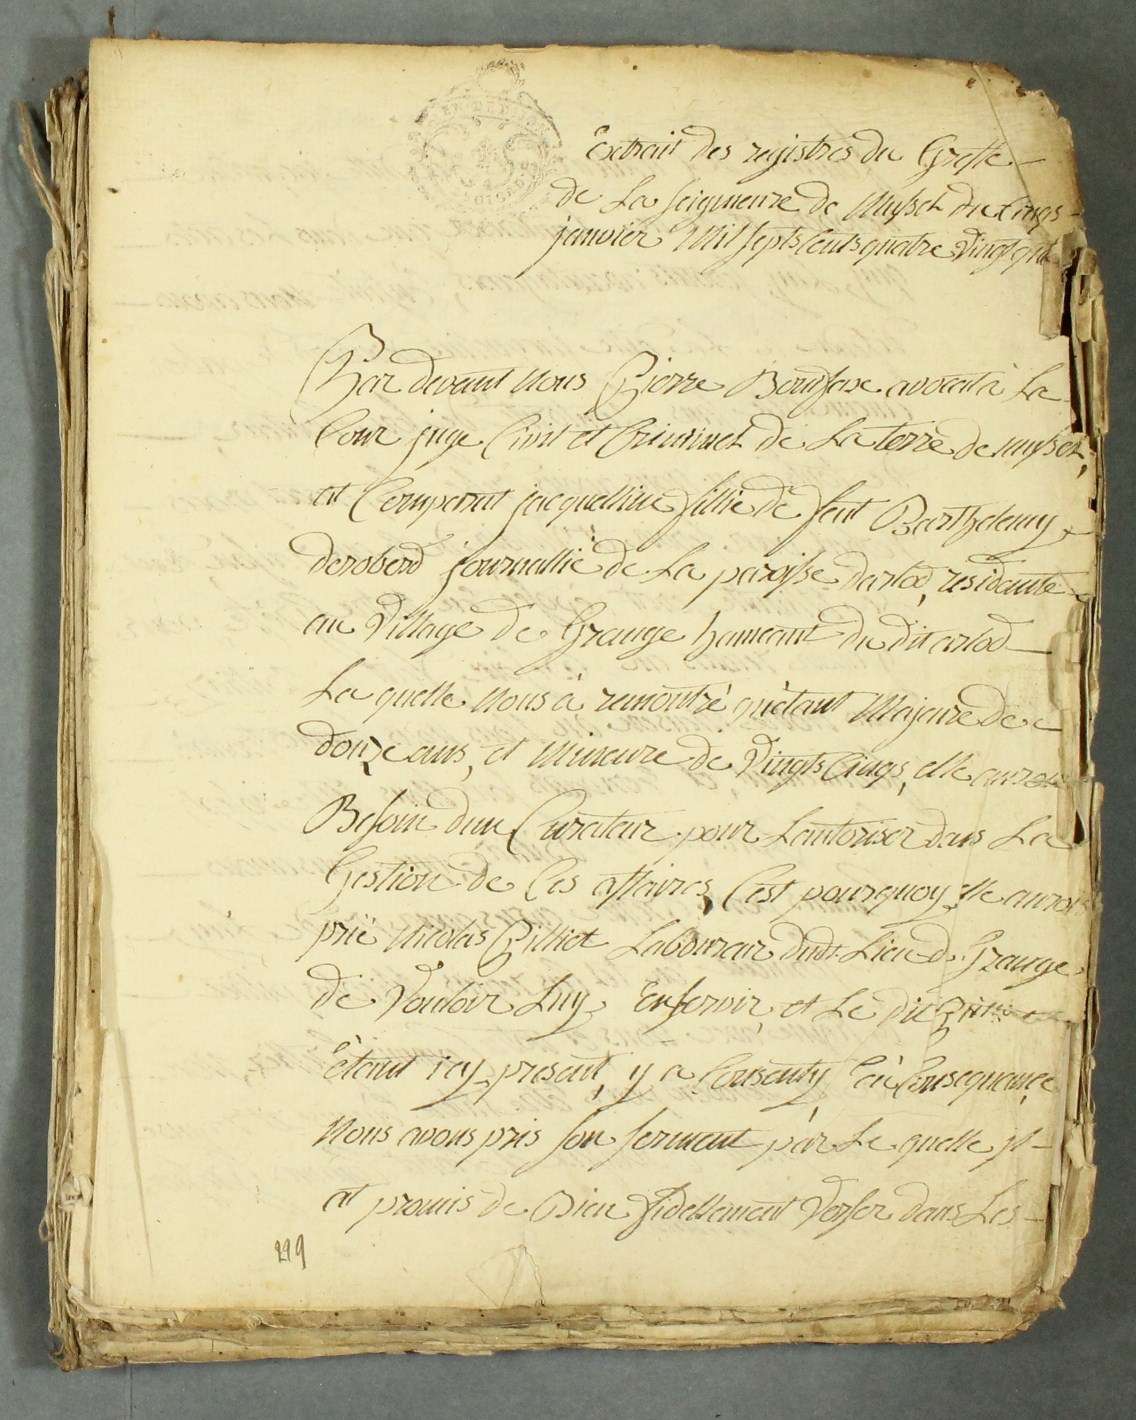 Extrait des registres du Greffe
de La seigneurie de Mussel du Cinqs
janvier Mil septs Cents quatre Vingt
Par devant Nous Pierre avocat à La
Cour juge Civil et Criminel de La terre de mussel,
at Comparut jacquelline fillie de feut Barthelemy
derobert journallié de La paroisse darlod, residante
au Village de Grange hameaut du dit arlod
La quelle Nous à remontré quétant Majeure de
douze ans, et Mineure de Vingts Cinqs, elle auroit
Besoin dun Curateur pour Lautoriser dans La
Gestion de Ces affaires, Cest pourquoy elle auroit
prié Nicolas Laboureur dudt. Lieu d. Grange
de Vouloir Luy En servir, et Le dit
étant icy present, y a Consenty, En Consequence
Nous avons pris son serment par Le quelle jl
at promis de Bien fidellement Verser dans Les